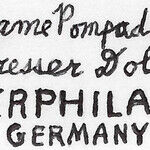 ame Pompad
resser Dol
ERPHILA
GERMANY